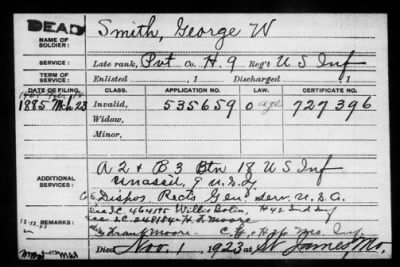 DEAD
NAME OF SOLDIER:
Smith, George W
SERVICE:
Late rank, Pvt Co. H. 9 Reg't U S Inf
TERM OF SERVICE:
Enlisted , 1 Discharged , 1
DATE OF FILING.
CLASS.
APPLICATION NO.
LAW.
CERTIFICATE NO.
1885 Mch 23
Invalid,
535659
age
727396
Widow,
Minor,
ADDITIONAL SERVICES:
A 2 & B 3 Btn 18 U S Inf
Unassd, 9 U.S.
Dispos Rects Gen Serv. U.S.A.
REMARKS:
464195 Willis H 42 Ind Inf
248184 H. F. Moore
Moore Mo. Inf
Died Nov. 1, 1923 at St James, Mo.